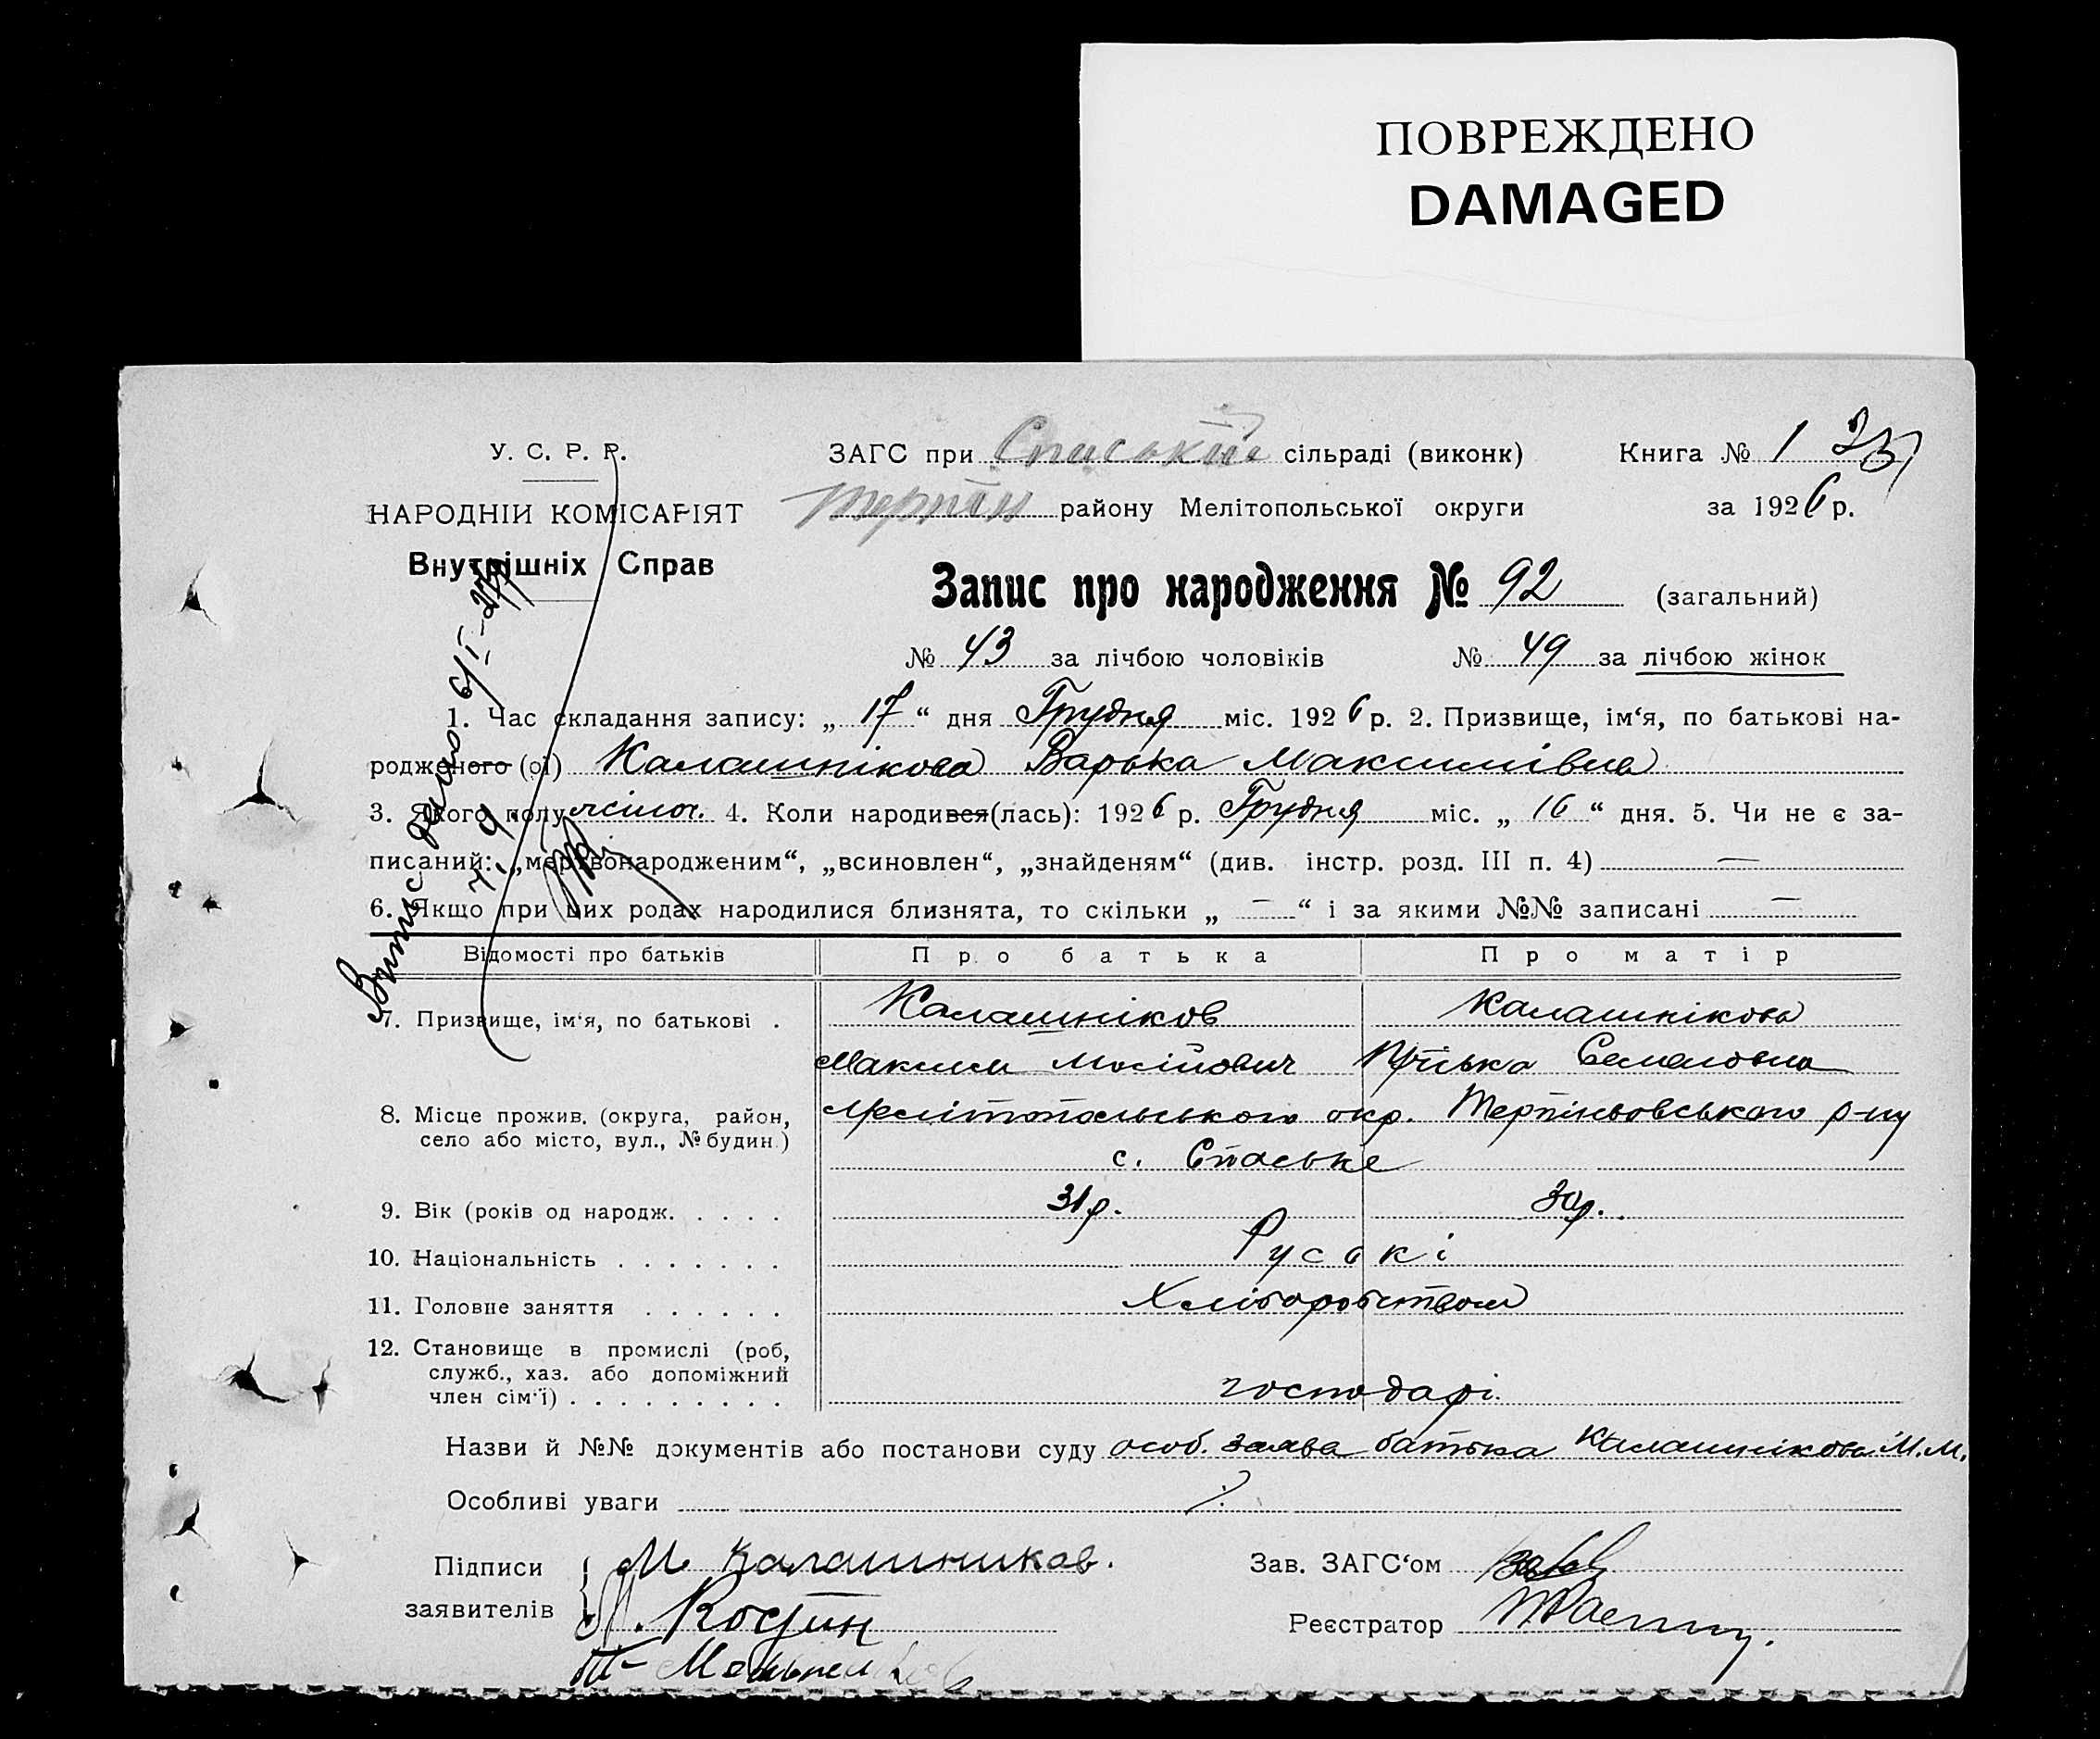 ПОВРЕЖДЕНО
DAMAGED
У. С. Р. Р.
НАРОДНІЙ КОМІСАРІЯТ
Внутрішніх Справ
ЗАГС при Спаській сільраді (виконк)
Терпін району Мелітопольської округи
Книга № 1
за 1926 р.
Запис про народження № 92 (загальний)
№ 43 за лічбою чоловіків № 49 за лічбою жінок
Випис дано 6/I-27
1. Час складання запису: „17“ дня Грудня міс. 1926 р. 2. Призвище, ім‘я, по батькові на-
родженого (ої) Калашнікова Варька Максимівна
3. Якого полу жіноч. 4. Коли народився(лась): 1926 р. Грудня міс. „16“ дня. 5. Чи не є за-
писаний: „мертвонародженим“, „всиновлен“, „знайденям“ (див. інстр. розд. III п. 4) —
6. Якщо при цих родах народилися близнята, то скільки „—“ і за якими №№ записані —
Відомості про батьків Про батька Про матір
7. Призвище, ім‘я, по батькові . Калашніков Калашнікова
Максим Семеновна
8. Місце прожив. (округа, район, Мелітопольського окр. Терпіньовського р-ну
село або місто, вул., № будин.) с. Спаське
9. Вік (років од народж. . . . . 31 р. 30 р.
10. Національність . . . . . . . Руські
11. Головне заняття . . . . . . Хліборобством
12. Становище в промислі (роб,
служб., хаз. або допоміжний
член сім‘ї) . . . . . . . . . господарі.
Назви й №№ документів або постанови суду особ. заява батька Калашнікова М.М.
Особливі уваги
Підписи М Калашников.
заявителів Костин
Зав. ЗАГС‘ом
Реєстратор